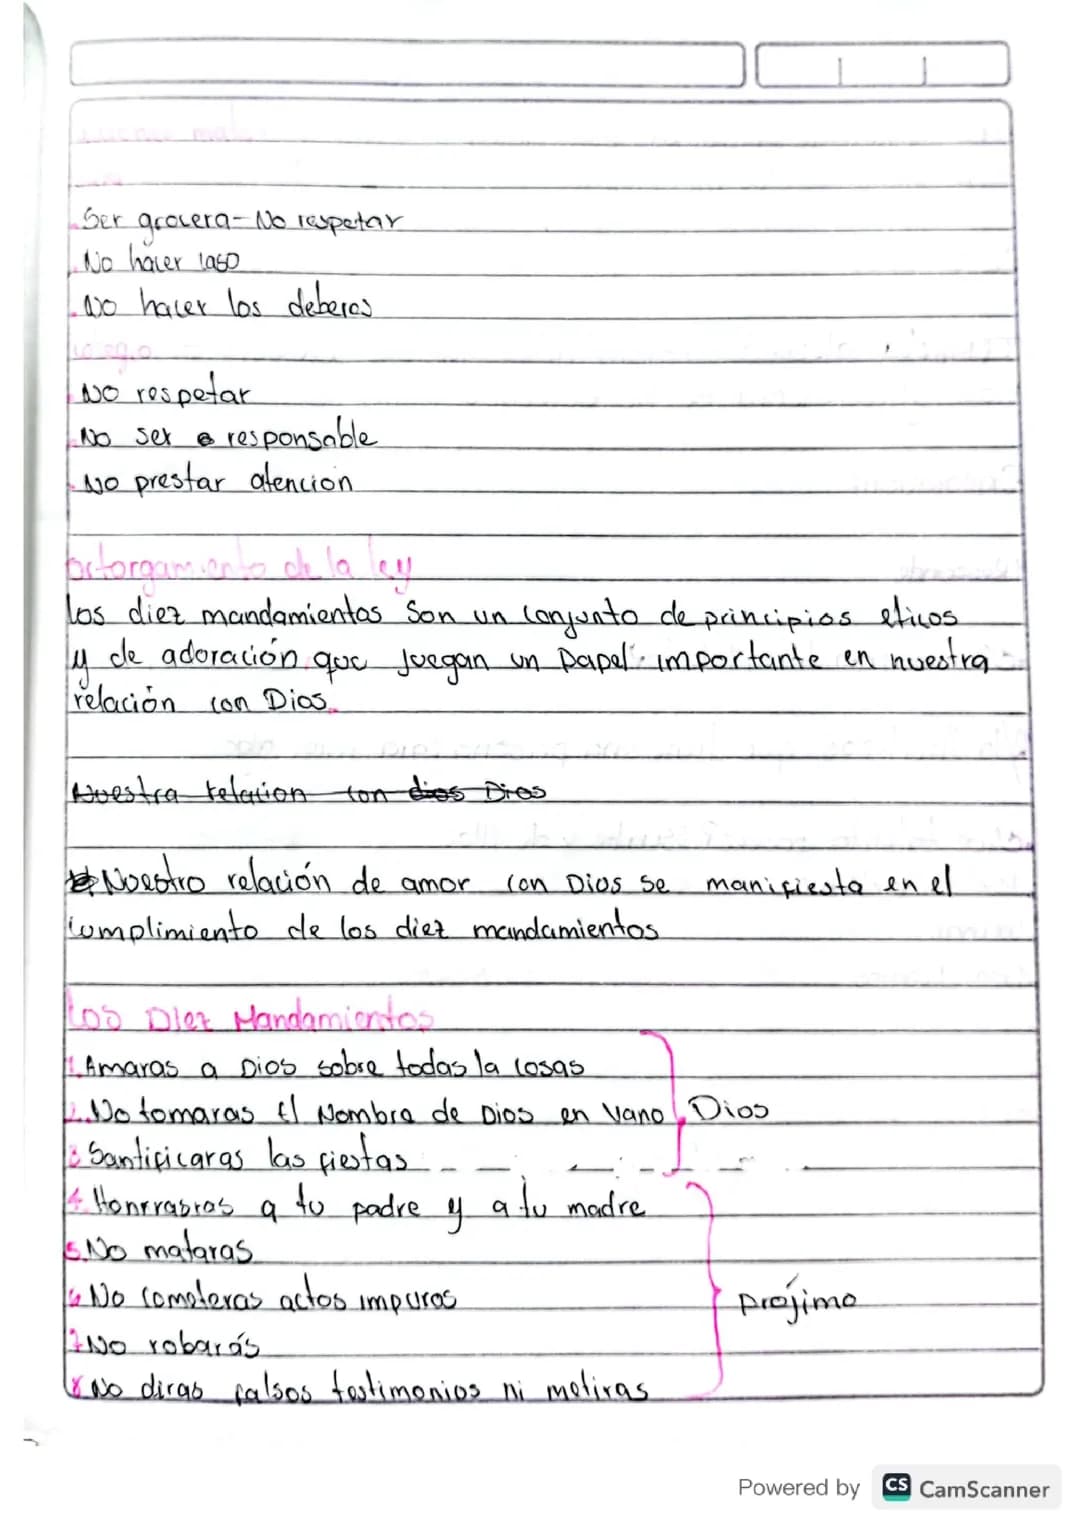 Ser grocera - No respetar
. No hacer caso
. No hacer los deberes
No respetar
. No ser responsable
. No prestar atencion
ortorgamiento de la ley
los diez mandamientos son un conjunto de principios eticos
y de adoración que juegan un papel importante en nuestra
relación con Dios.
Nuestra relacion con dios Dios
Nuestro relación de amor con Dios se manifiesta en el
cumplimiento de los diez mandamientos
Los Diez Mandamientos
1. Amaras a Dios sobre todas la cosas
2. No tomaras El Nombre de Dios en vano
Dios
3 Santificaras las fiestas
4. Honrrabras a tu padre y a tu madre
5. No mataras
6 No cometeras actos impuros
prójimo
7 No robarás
8 No diras falsos testimonios ni metiras
Powered by CS CamScanner